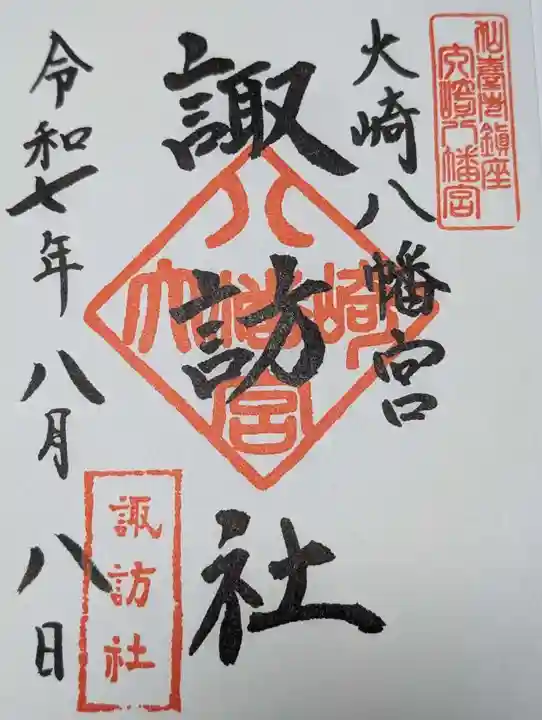 仙臺市鎮座
大崎八幡宮
大崎八幡宮
諏訪社
大崎八幡宮
諏訪社
令和七年八月八日